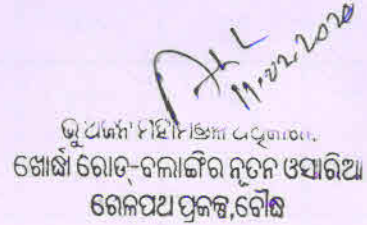 11.02.2020
ଭୂ ଅର୍ଜନ
ଖୋର୍ଦ୍ଧା ରୋଡ-ବଲାଙ୍ଗିର ନୂତନ ଓସାରିଆ
ରେଳପଥ ପ୍ରକଳ୍ପ,ବୌଦ୍ଧ